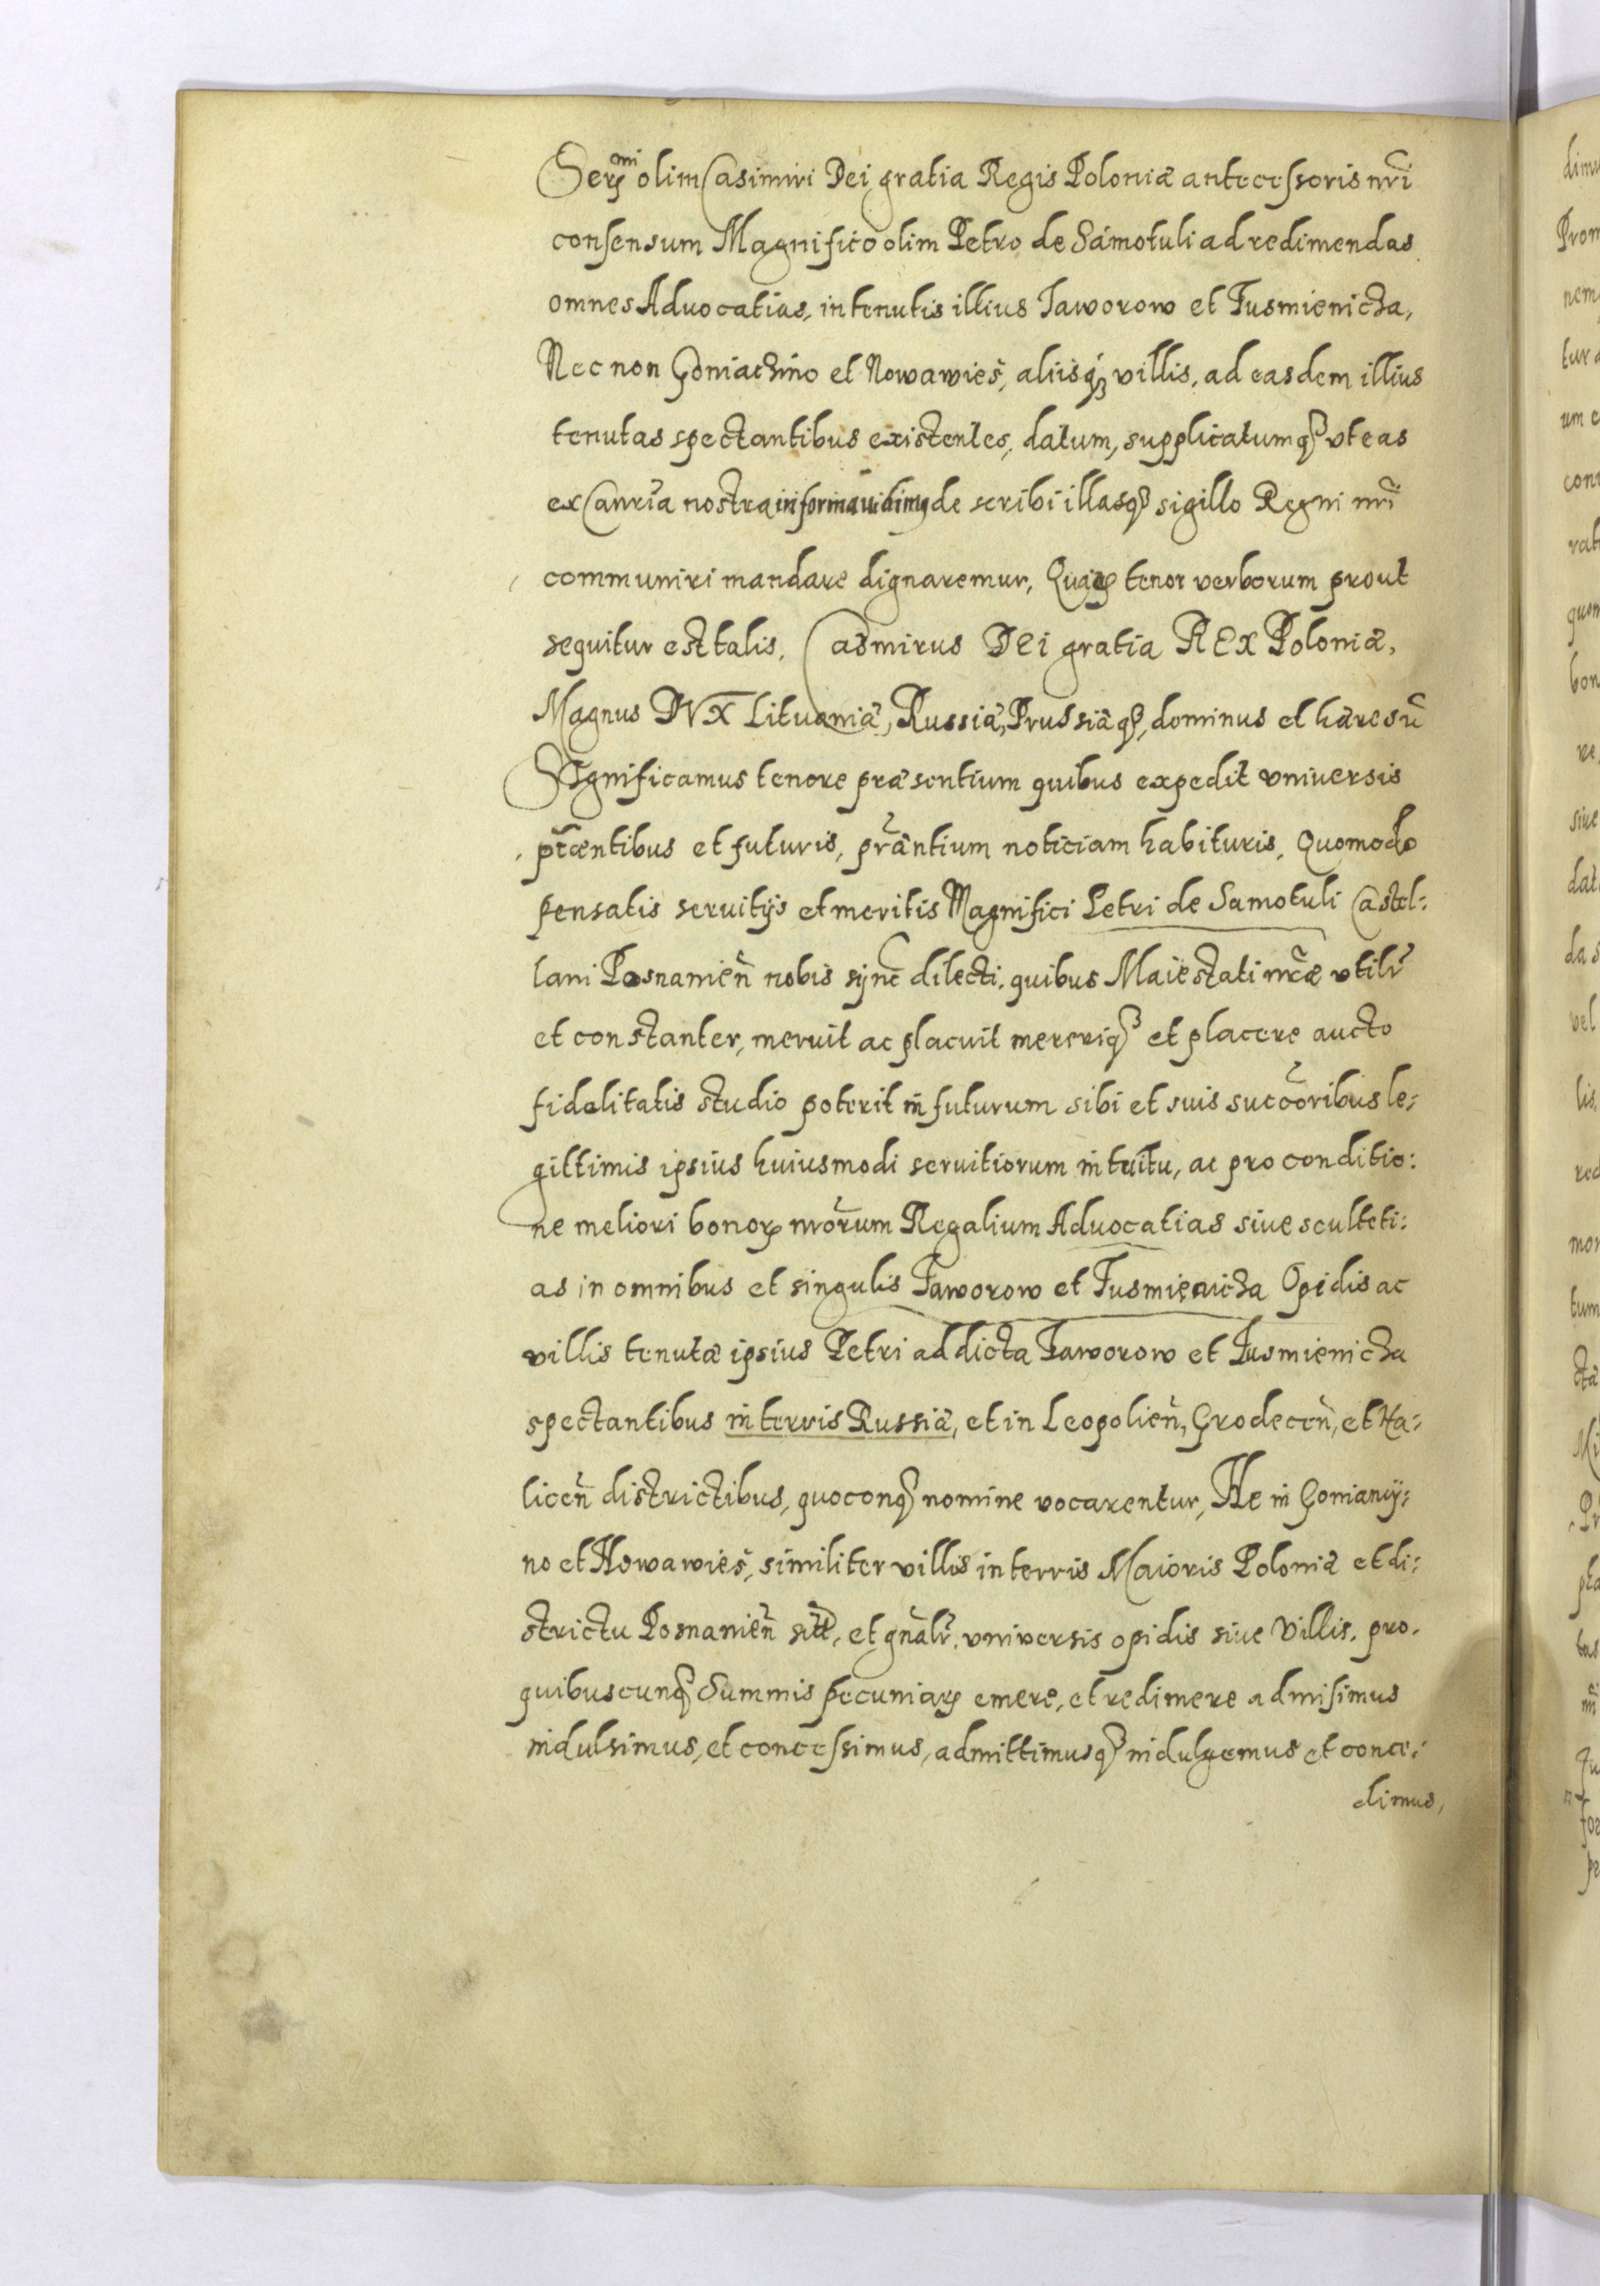 Ser^mi olim Casimiri Dei gratia Regis Poloniæ antecessoris nrĩ
consensum Magnifico olim Petro de Samotuli ad redimendas
omnes Aduocatias, in tenutis illius Jaworow et Tusmienicza,
Nec non Goniachino et Nowawieś, aliisq; villis, ad easdem illius
tenutas spectantibus existentes, datum, supplicatumq; vt eas
ex Canrĩa nostra in forma vidimus de scribi illasq; sigillo Regni nrĩ
communiri mandare dignaremur, tenor verborum prout
sequitur est talis. Casmirus DEi gratia REX Poloniæ,
Magnus DVX Lituaniæ, Russiæ, Prussiæq;, dominus et hæres
Significamus tenore præsentium quibus expedit vniuersis
et futuris, noticiam habituris, Quomodo
pensatis seruitijs et meritis Magnifici Petri de Samotuli Castel:
lani Posnamień nobis dilecti, quibus Maiestati nrẽæ vtilr̃
et constanter, meruit ac placuit mereriq; et placere aucto
fidelitatis studio poterit in futurum sibi et suis succõribus le:
gittimis ipsius huiusmodi seruitiorum intuitu, ac pro conditio:
ne meliori bonorꝝ nrõrum Regalium Aduocatias siue sculteti:
as in omnibus et singulis Jaworow et Tusmienicza Opidis ac
villis tenutæ ipsius Petri ad dicta Jaworow et Tusmienicza
spectantibus in terris Russiæ, et in Leopolieñ, Grodeceñ, et Ha:
liceñ districtibus, quoconq; nomine vocarentur, Ac in Gonianij:
no et Nowawieś, similiter villis in terris Maioris Poloniæ et di:
strictu Posnanieñ et gñalr̃, vniuersis opidis siue Villis, pro
quibuscunq; Summis pecuniarꝝ emere, et redimere admisimus
indulsimus, et concessimus, admittimusq; indulgemus et conce:
dimus,